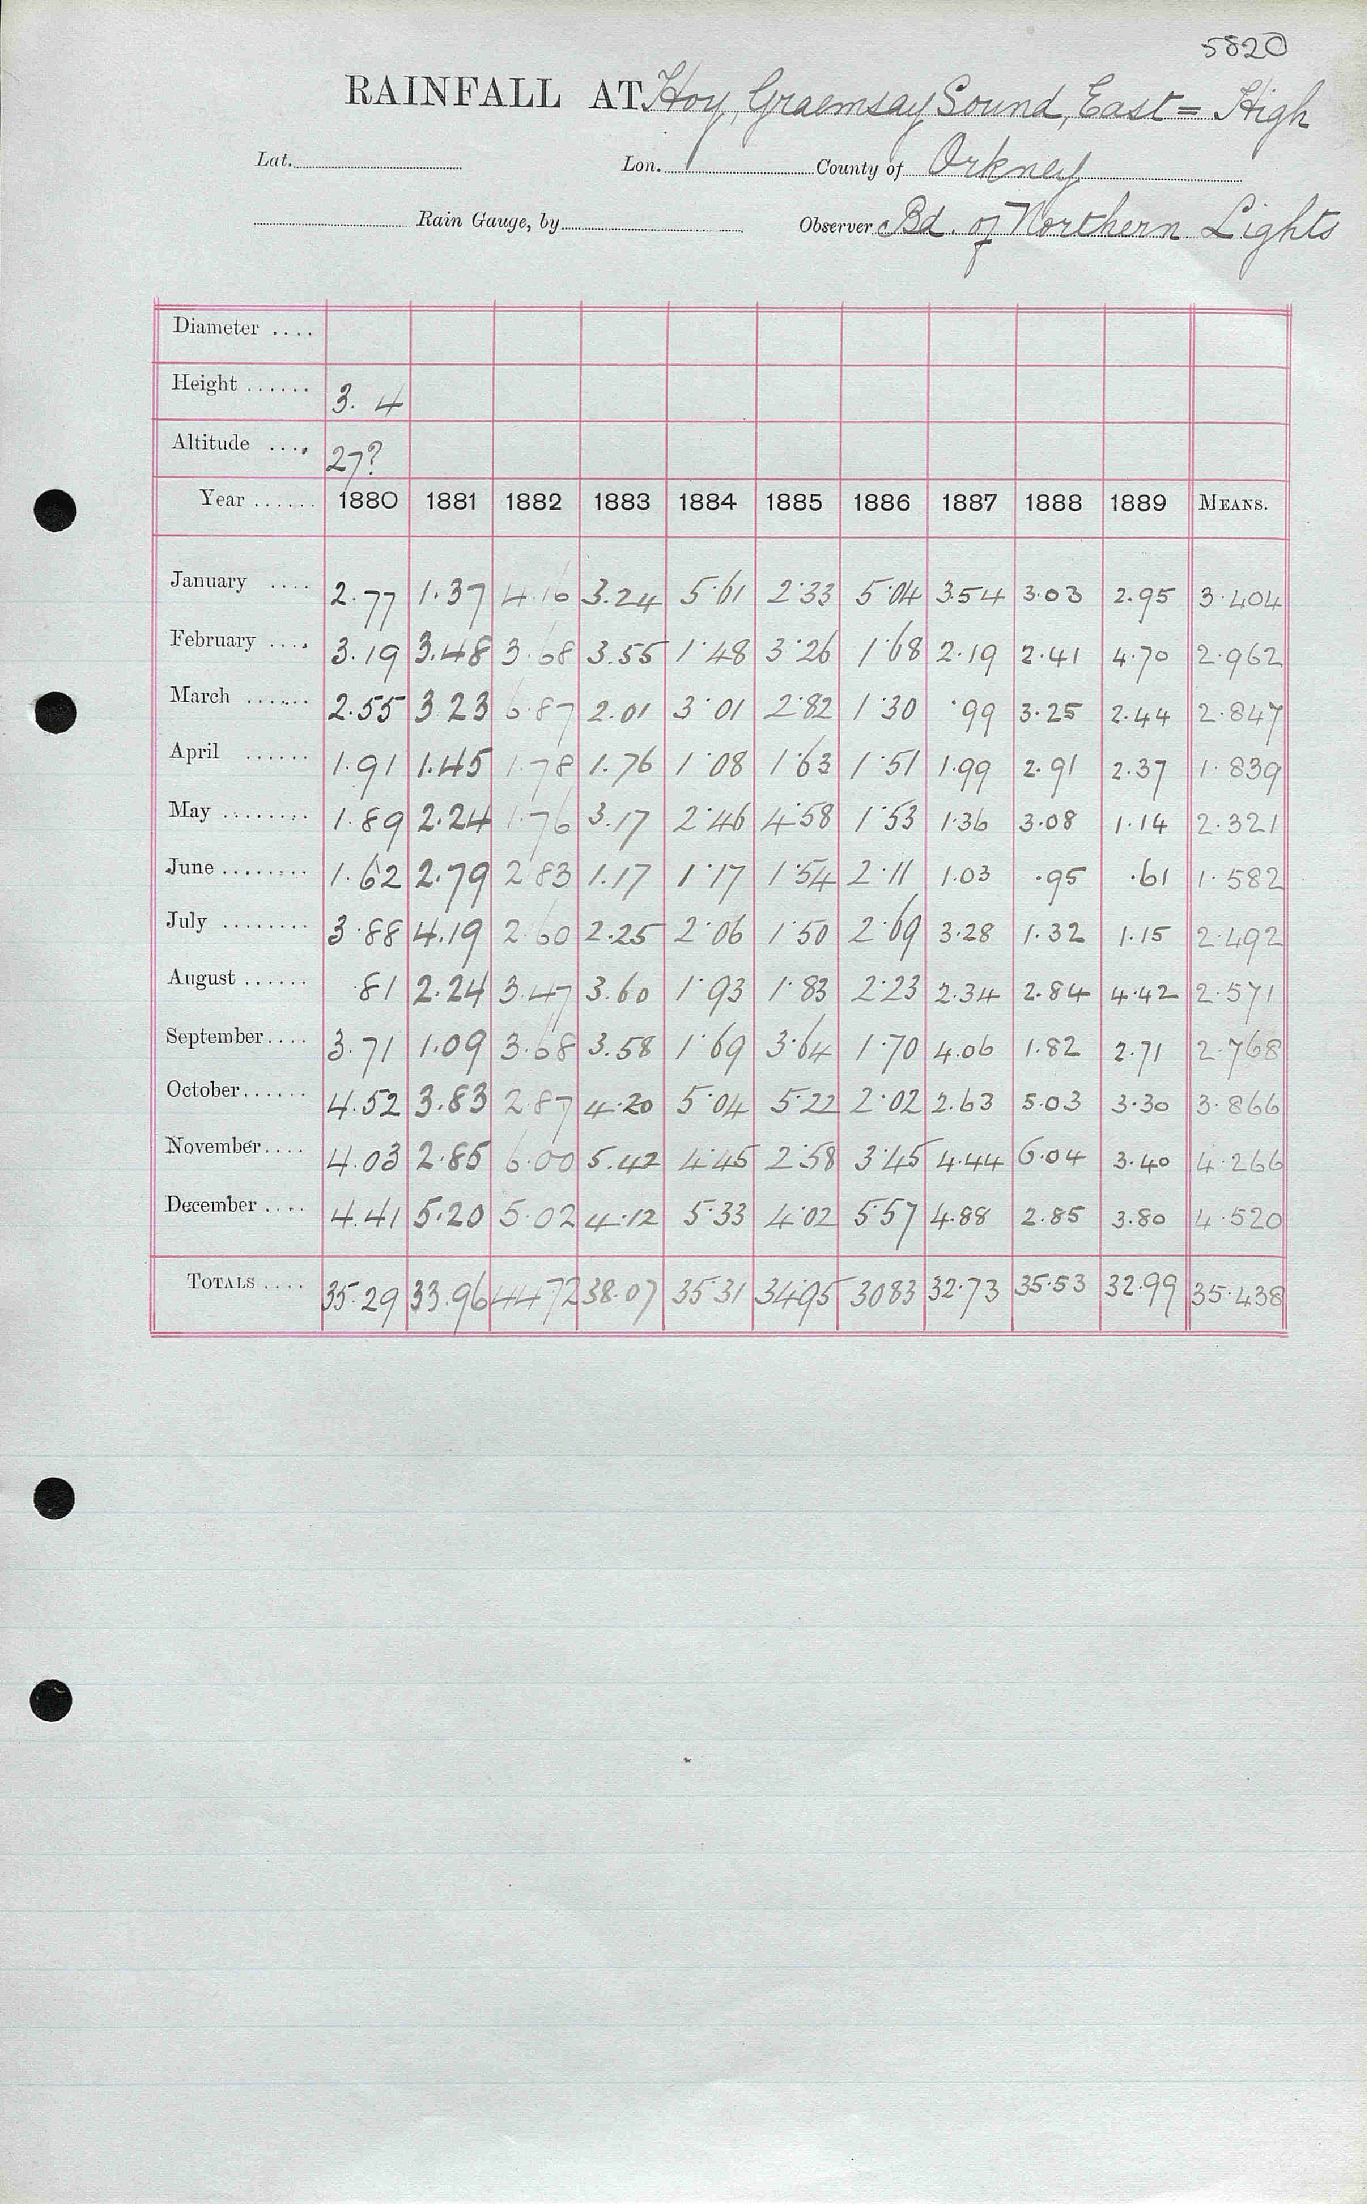 5820
RAINFALL AT Hoy, Graemsay Sound, East = High
Lat. Lon. County of Orkney
Rain Gauge, by Observer Bd. of Northern Lights
Diameter ....
Height ...... 3. 4
Altitude .... 27?
Year ...... 1880 1881 1882 1883 1884 1885 1886 1887 1888 1889 MEANS.
January .... 2.77 1.37 4.16 3.24 5.61 2.33 5.04 3.54 3.03 2.95 3.404
February .... 3.19 3.48 3.68 3.55 1.48 3.26 1.68 2.19 2.41 4.70 2.962
March ...... 2.55 3.23 6.87 2.01 3.01 2.82 1.30 .99 3.25 2.44 2.847
April ...... 1.91 1.45 1.78 1.76 1.08 1.63 1.51 1.99 2.91 2.37 1.839
May ........ 1.89 2.24 1.76 3.17 2.46 4.58 1.53 1.36 3.08 1.14 2.321
June ........ 1.62 2.79 2.83 1.17 1.17 1.54 2.11 1.03 .95 .61 1.582
July ........ 3.88 4.19 2.60 2.25 2.06 1.50 2.69 3.28 1.32 1.15 2.492
August ...... .81 2.24 3.47 3.60 1.93 1.83 2.23 2.34 2.84 4.42 2.571
September .... 3.71 1.09 3.68 3.58 1.69 3.64 1.70 4.06 1.82 2.71 2.768
October ...... 4.52 3.83 2.87 4.20 5.04 5.22 2.02 2.63 5.03 3.30 3.866
November .... 4.03 2.85 6.00 5.42 4.45 2.58 3.45 4.44 6.04 3.40 4.266
December .... 4.41 5.20 5.02 4.12 5.33 4.02 5.57 4.88 2.85 3.80 4.520
TOTALS .... 35.29 33.96 44.72 38.07 35.31 34.95 30.83 32.73 35.53 32.99 35.438